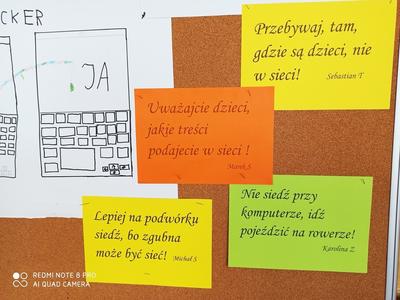 CKER
JA
Przebywaj, tam,
gdzie są dzieci, nie
w sieci!
Sebastian T
Uważajcie dzieci,
jakie treści
podajecie w sieci !
Marek S
Lepiej na podwórku
siedź, bo zgubna
może być sieć!
Michał S
Nie siedź przy
komputerze, idź
pojeździć na rowerze!
Karolina Z
REDMI NOTE 8 PRO
AI QUAD CAMERA